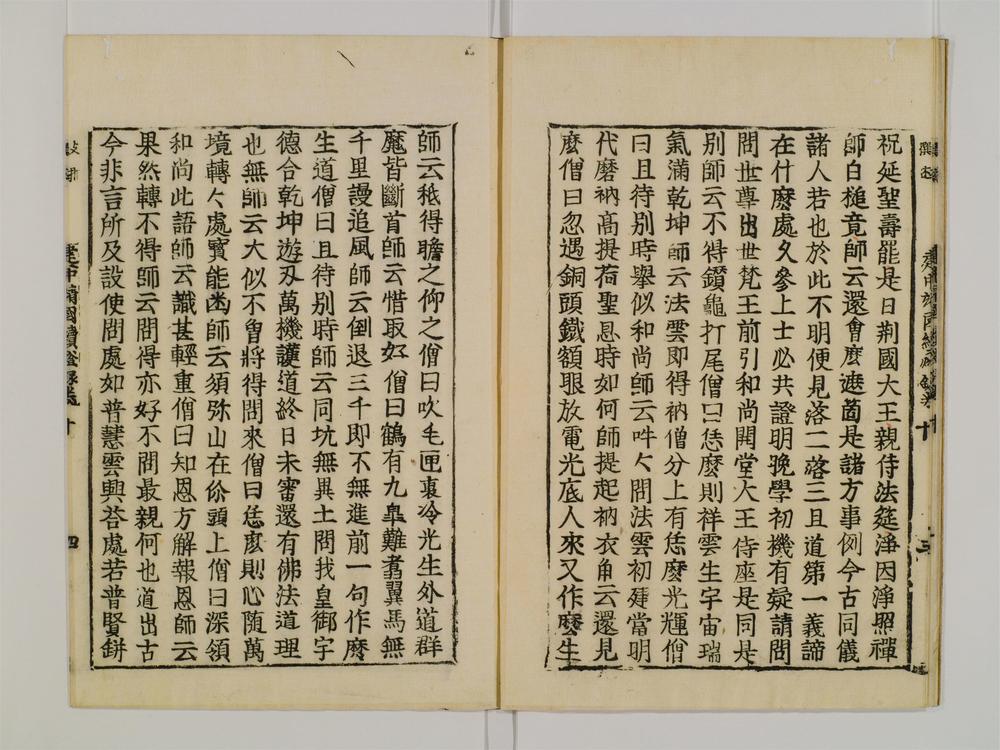 祝延聖壽罷是日荆國大王親侍法筵淨因淨照禪
師白槌竟師云還會麽遮箇是諸方事例今古同儀
諸人若也於此不明便見落二落三且道第一義諦
在什麽處久參上士必共證明晚學初機有疑請問
問世尊出世梵王前引和尚開堂大王侍座是同是
別師云不得鑽龜打尾僧曰恁麽則祥雲生宇宙瑞
氣滿乾坤師云法雲即得衲僧分上有恁麽光輝僧
曰且待別時舉似和尚師云吽吽問法雲初建當明
代磨衲高提荷聖恩時如何師提起衲衣角云還見
麽僧曰忽遇銅頭鐵額眼放電光底人來又作麽生
師云秪得瞻之仰之僧曰吹毛匣裏冷光生外道群
魔皆斷首師云惜取好僧曰鶴有九臯難翥翼馬無
千里謾追風師云倒退三千即不無進前一句作麽
生道僧曰且待別時師云同坑無異土問我皇御宇
德合乾坤遊刃萬機護道終日未審還有佛法道理
也無師云大似不曾將得問來僧曰恁麽則心隨萬
境轉轉處實能幽師云須弥山在你頭上僧曰深領
和尚此語師云識甚輕重僧曰知恩方解報恩師云
果然轉不得師云問得亦好不問最親何也道出古
今非言所及設使問處如普慧雲興荅處若普賢缾
建中靖國續燈録卷十
四